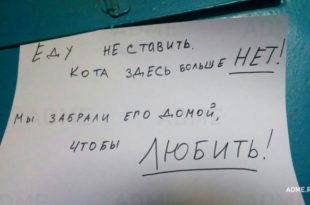 Еду не ставить.
Кота здесь больше НЕТ!
Мы забрали его домой,
чтобы ЛЮБИТЬ!
ADME.R